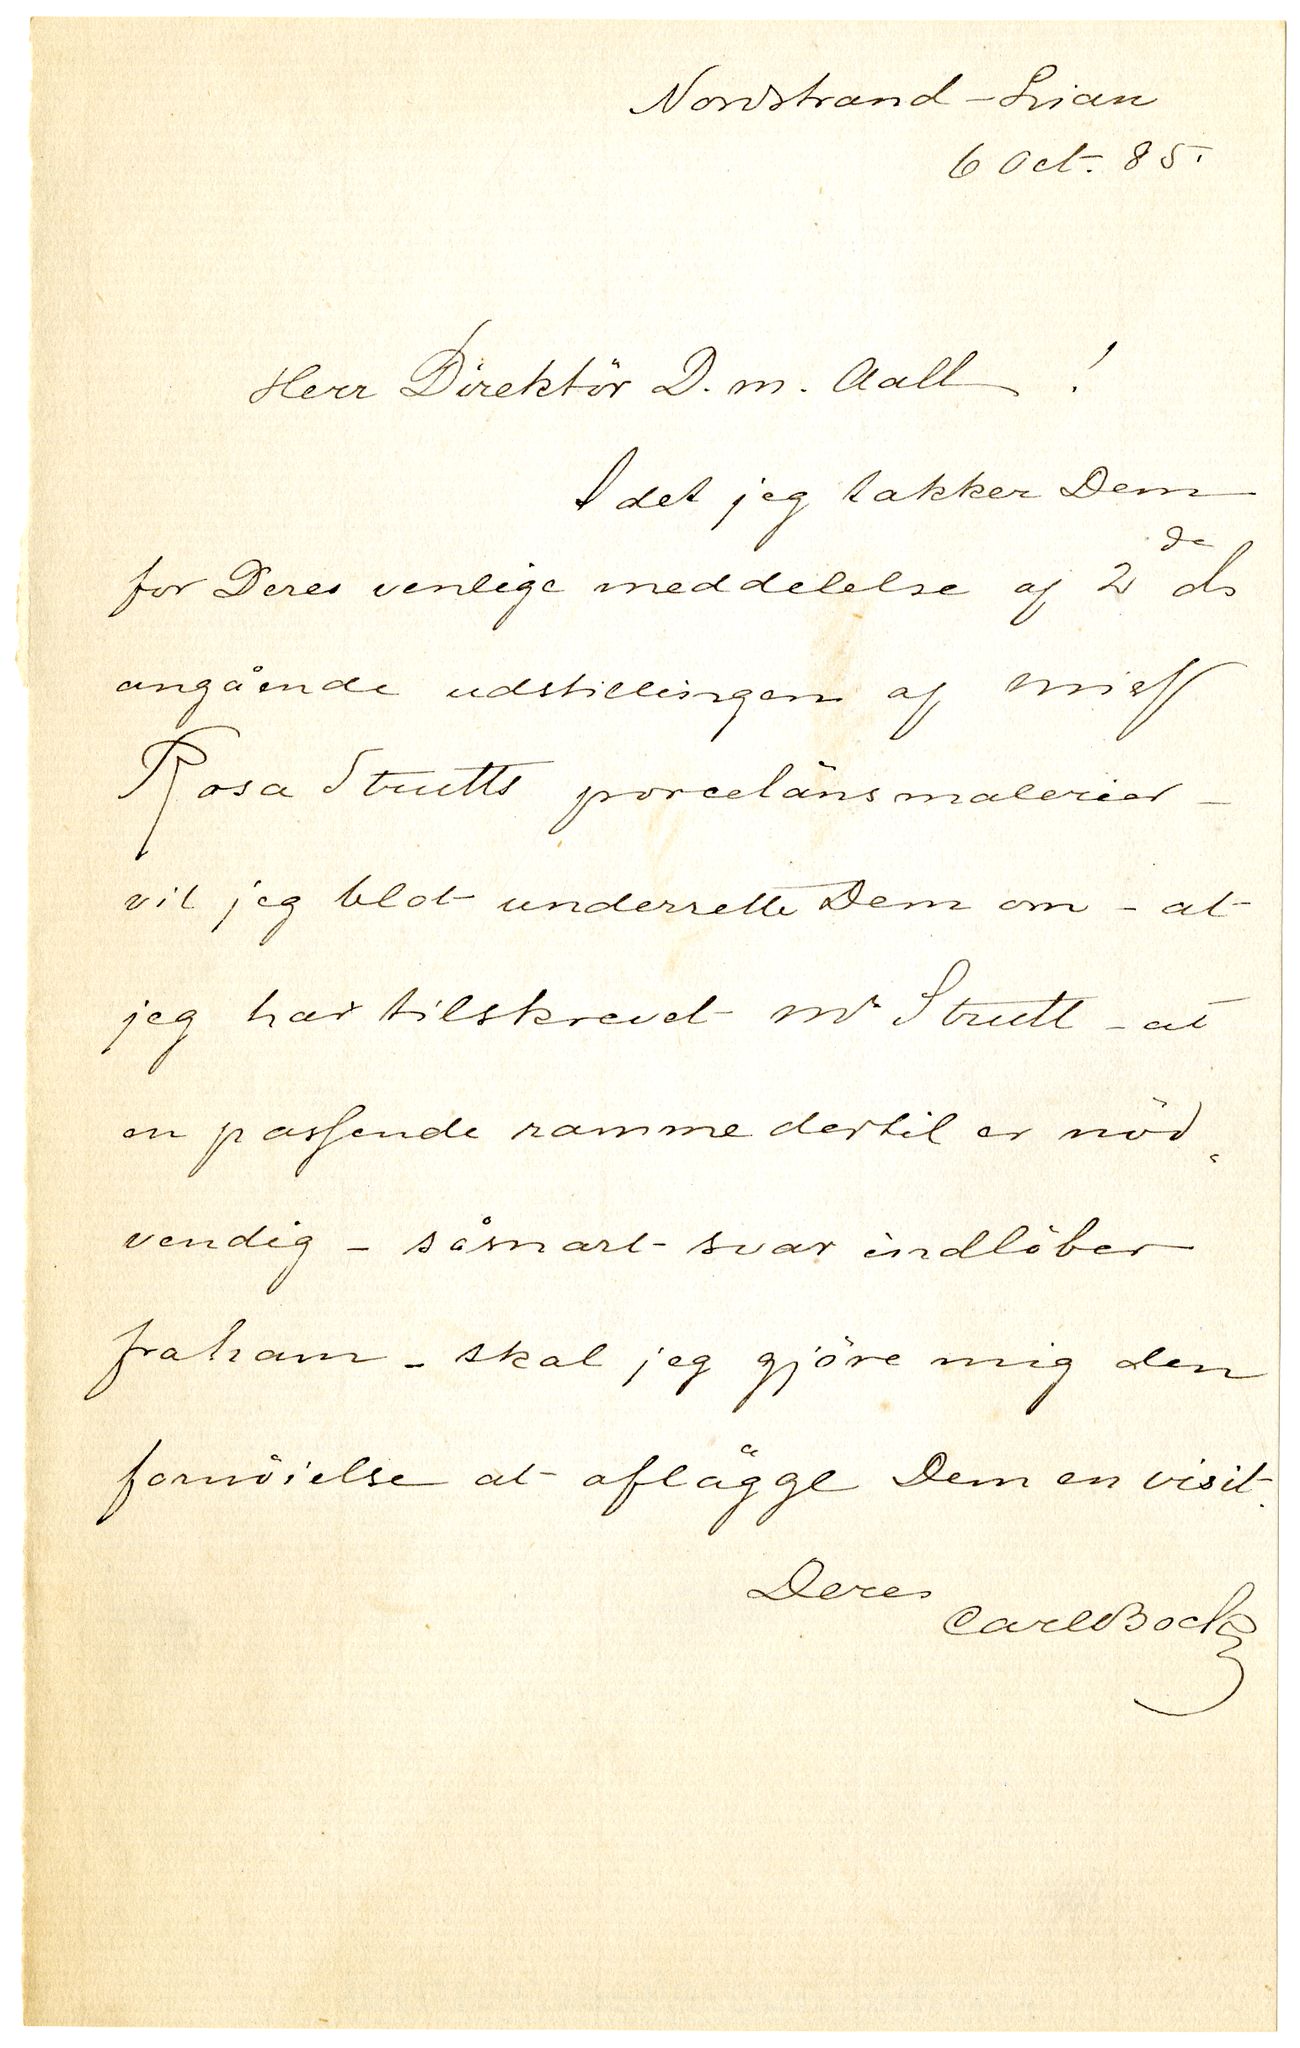 Nordstrand - Lian
6 Oct. 85.
Herr Direktör D. M. Aall !
Idet jeg takker Dem
for Deres venlige meddelelse af 2de ds
angående udstillingen af miss
Rosa Strutts porcelänsmalerier -
vil jeg blot underrette Dem om - at
jeg har tilskrevet Mr Strutt - at
en passende ramme dertil er nöd,
vendig - såsnart svar indlöber
fra ham - skal jeg gjöre mig den
fornöielse at aflägge Dem en visit.
Deres
Carl Bock